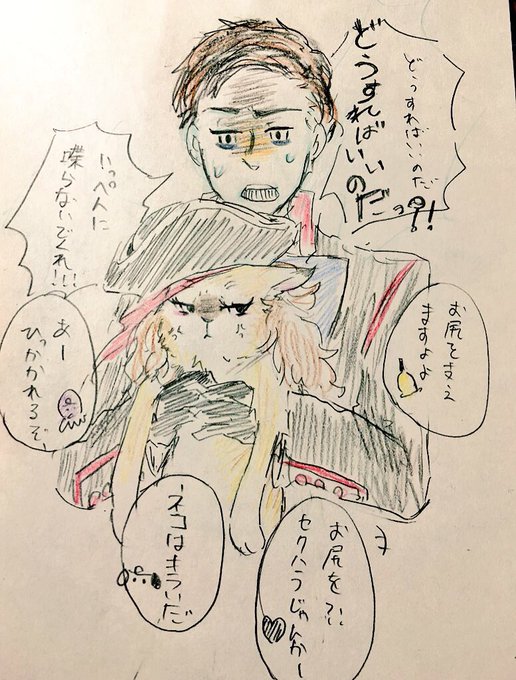 どうすればいいのだ
どうすればいい
のだっ!?!
いっぺんに
喋らないでくれ!!!
お尻を支え
ますよよ
あー
ひっかかれるぞ、
ネコはきらいだ
お尻を!?
セクハラじゃんかー